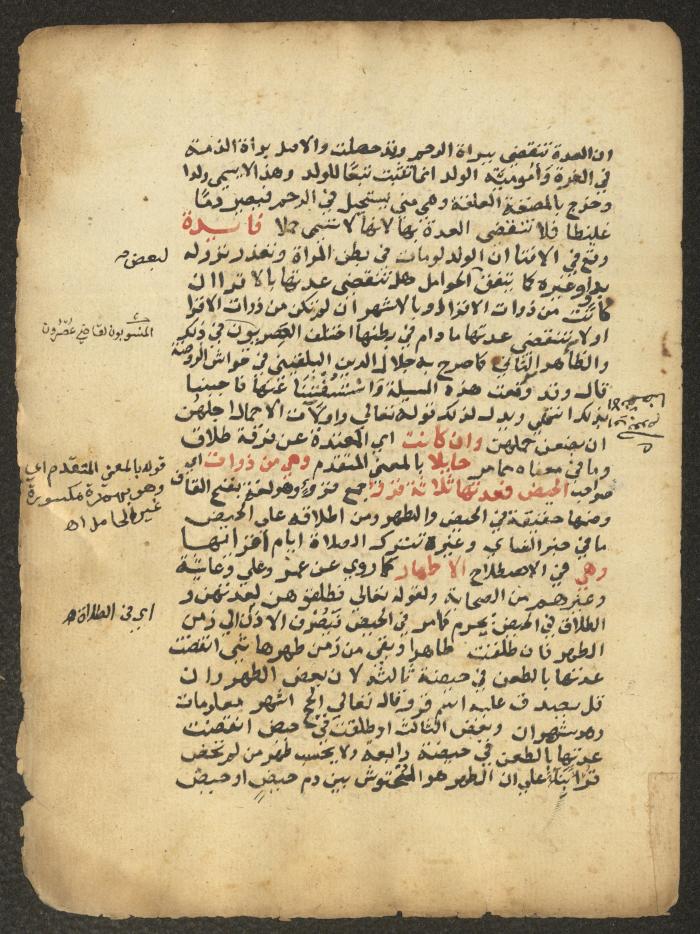 ان العدة تنقضي ببراة الرحم وقد حصلت والاصل براة الذمة
في الغرة وأمومية الولد انما تثبت تبعًا للولد وهذا لا يسمى ولدا
وخرج بالمضغة العلقة وهي مني يستحيل في الرحم فيصير دمًا
غليظا فلا تنقضي العدة بها لانها لا تسمى حملا فايدة
وقع في الافتا ان الولد لو مات في بطن المراة وتعذر نزوله
بدوا وغيره كما يتفق لبعض الحوامل هل تنقضي عدتها بالاقرا ان
كانت من ذوات الاقرا او بالاشهر ان لم تكن من ذوات الاقرا
او لا تنقضي عدتها ما دام في بطنها اختلف العصريون في ذلك
والظاهر الثاني كما صرح به جلال الدين البلقيني في حواشي الروضة
قال وقد وقعت هذه المسيلة واستفتينا عنها فاجبنا
بذلك انتهى ويدل لذلك قوله تعالى واولات الاحمال اجلهن
ان يضعن حملهن وان كانت اي المعتدة عن فرقة طلاق
وما في معناه مما مر حايلا بالمعنى المتقدم وهي من ذوات اي
صواحب الحيض فعدتها ثلاثة قروء جمع قرؤ وهو لغة بفتح القاف
وضمها حقيقة في الحيض والطهر ومن اطلاقه على الحيض
ما في خبر النساي وغيره تترك الصلاة ايام اقرائها
وهي في الاصطلاح الاطهار كما روي عن عمر وعلي وعايشة
وغيرهم من الصحابة ولقوله تعالى فطلقوهن لعدتهن و
الطلاق في الحيض يحرم كما مر في الحيض فيصرف الاذن الى زمن
الطهر فان طلقت طاهرا وبقي من زمن طهرها شي انقضت
عدتها بالطعن في حيضة ثالثة لان بعض الطهر وان
قل يصدق عليه اسم قرؤ قال تعالى الحج اشهر معلومات
وهو شهران وبعض الثالث او طلقت في حيض انقضت
عدتها بالطعن في حيضة رابعة ولا يحسب طهر من لم تحض
قرا بنا على ان الطهر هو المحتوش بين دم حيض او حيض
لبعض
المنسوبون لقاضي عصرون
قوله بالمعنى المتقدم اي
وهو بهمزة مكسورة
غير الحامل اه
اي في الطلاق اه